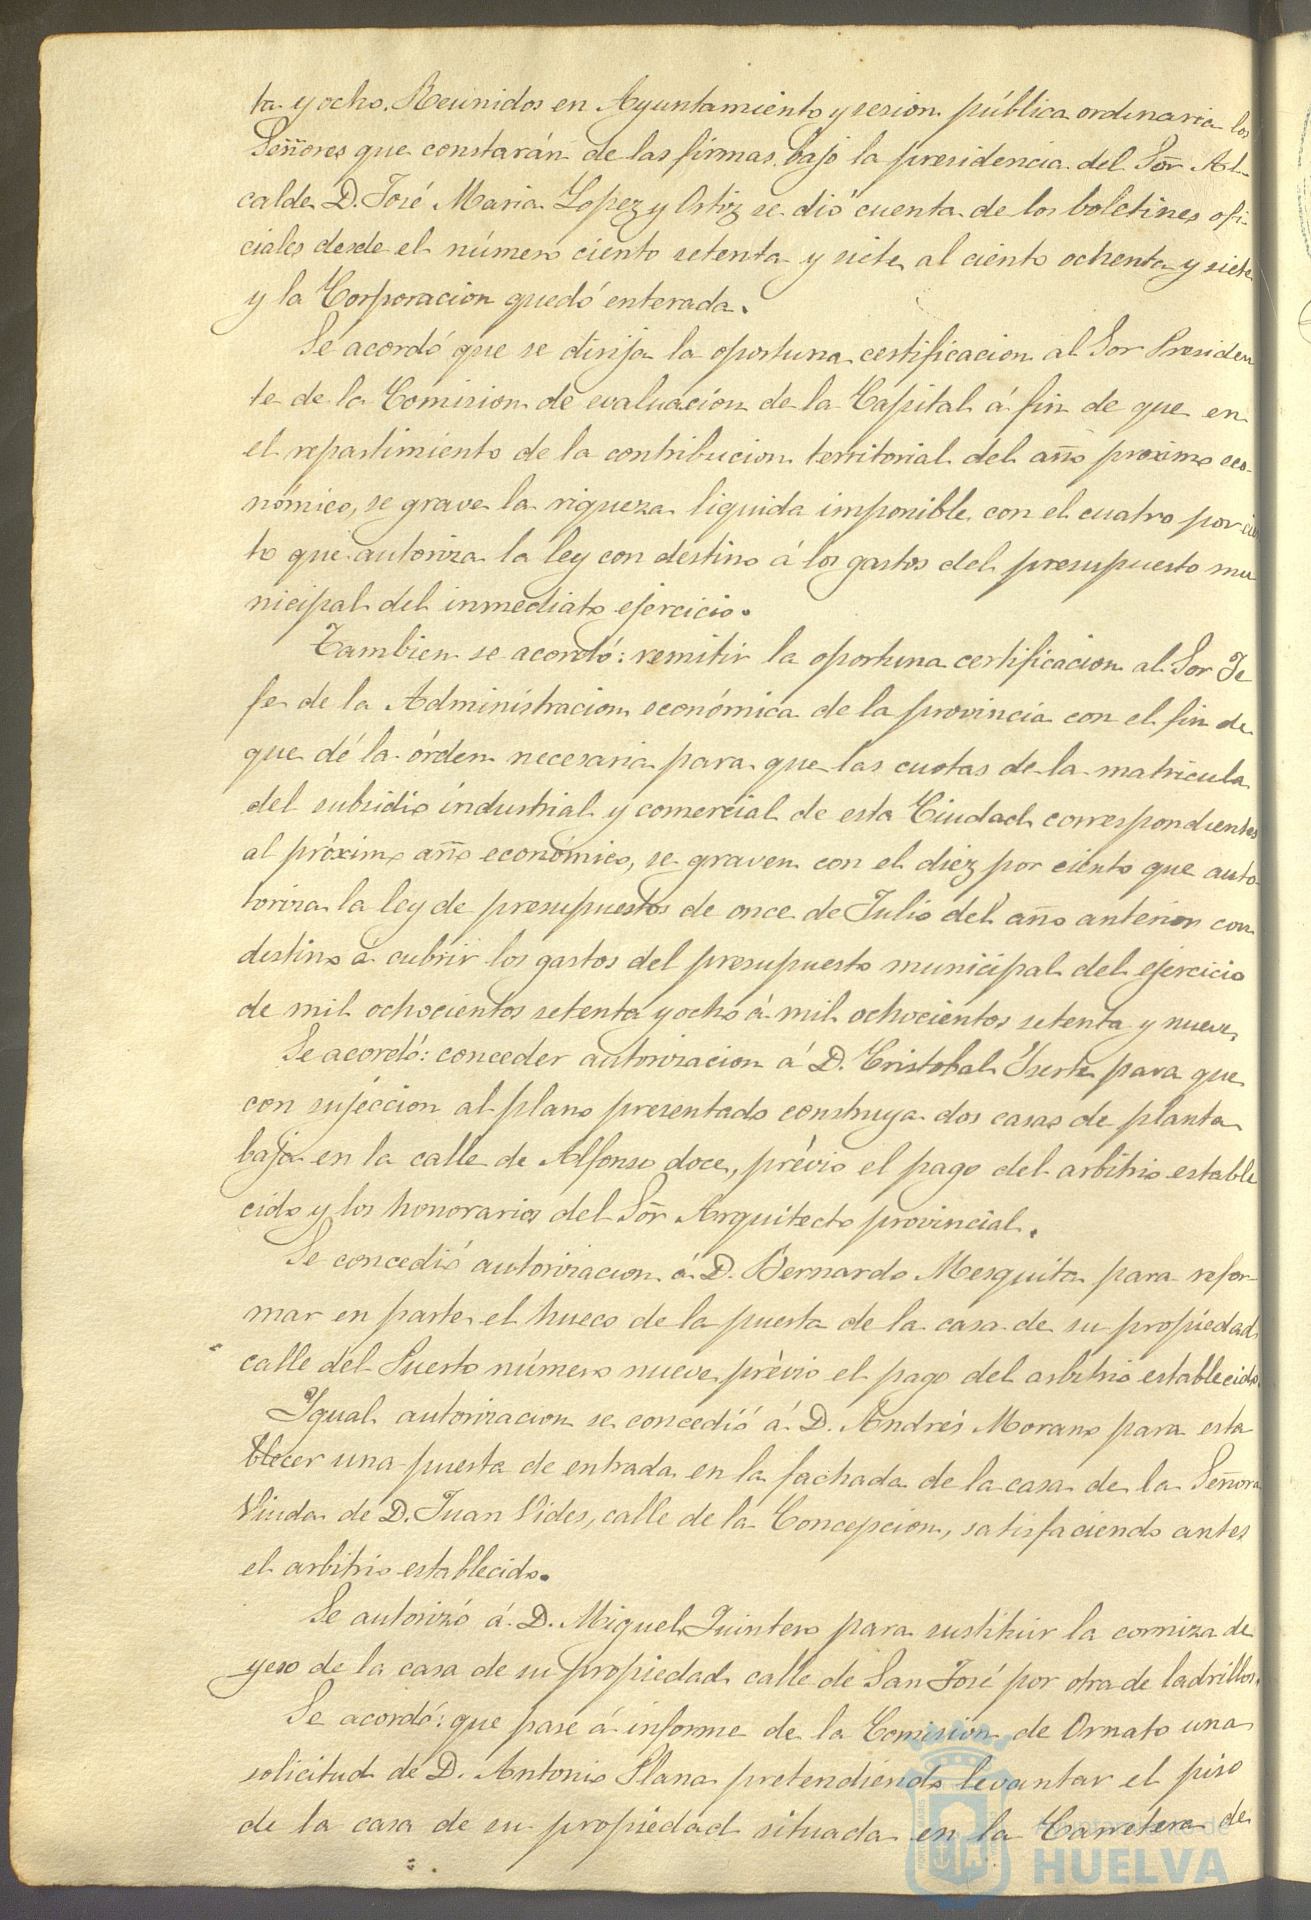 ta y ocho. Reunidos en Ayuntamiento y sesion pública ordinaria los
Señores que constarán de las firmas bajo la presidencia del Sõr Al-
calde D. José Maria Lopez y Ortiz se dió cuenta de los boletines ofi-
ciales desde el número ciento setenta y siete al ciento ochenta y siete
y la Corporacion quedó enterada.
Se acordó que se dirija la oportuna certificacion al Sor Presiden
te de la Comision de evaluación de la Capital á fin de que en
el repartimiento de la contribucion territorial del año proximo eco-
nómico, se grave la riqueza liquida imponible con el cuatro por cien
to que autoriza la ley con destino á los gastos del presupuesto mu
nicipal del inmediato ejercicio.
Tambien se acordó: remitir la oportuna certificacion al Sor Je
fe de la Administracion económica de la provincia con el fin de
que dé la órden necesaria para que las cuotas de la matricula
del subsidio industrial y comercial de esta Ciudad correspondientes
al próximo año económico, se graven con el diez por ciento que auto-
toriza la ley de presupuestos de once de Julio del año anterior con
destino a cubrir los gastos del presupuesto municipal del ejercicio
de mil ochocientos setenta y ocho á mil ochocientos setenta y nueve,
Se acordó: conceder autorizacion á D. Cristobal Yserte para que
con sujeccion al plano presentado construya dos casas de planta
baja en la calle de Alfonso doce, prévio el pago del arbitrio estable
cido y los honorarios del Sõr Arquitecto provincial.
Se concedió autorizacion á D. Bernardo Mesquita para refor-
mar en parte el hueco de la puerta de la casa de su propiedad
calle del Puerto número nueve prévio el pago del arbitrio establecido.
Ygual autorizacion se concedió á D. Andrés Morano para esta
blecer una puerta de entrada en la fachada de la casa de la Señora
Viuda de D. Juan Vides, calle de la Concepcion, satisfaciendo antes
el arbitrio establecido.
Se autorizó á D. Miguel Quintero para sustituir la corniza de
yeso de la casa de su propiedad calle de San José por otra de ladrillos.
Se acordó: que pase á informe de la Comision de Ornato una
solicitud de D. Antonio Plana pretendiendo levantar el piso
de la casa de su propiedad situada en la Carretera de
Ayuntamiento de
HUELVA